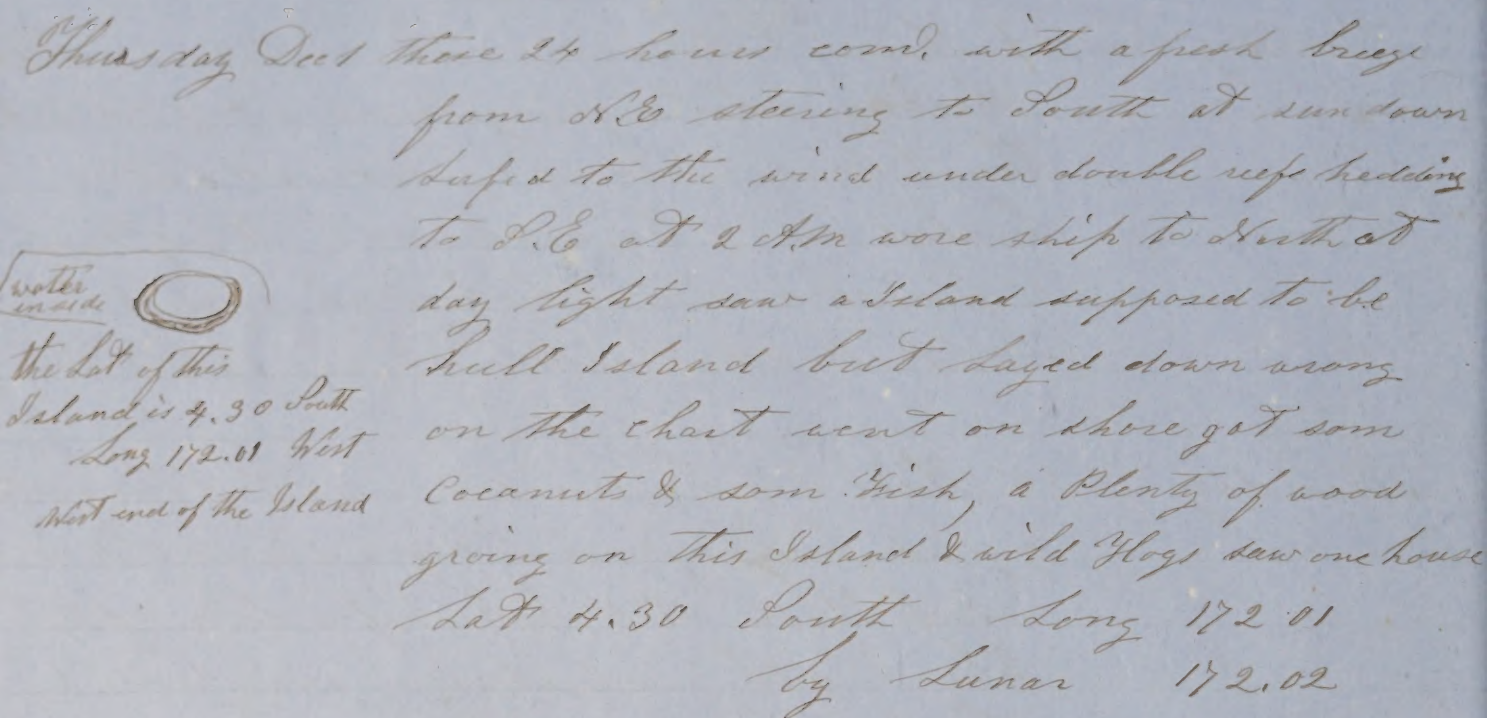 Thursday Dec 1 these 24 hours com. with a fresh breeze
from N.E steering to South at sun down
lufed to the wind under double reefs hedding
to S.E at 2 A.M wore ship to North at
day light saw a Island supposed to be
hull Island but layed down wrong
on the chart went on shore got som
Cocanuts & som Fish, a Plenty of wood
groing on this Island & wild Hogs saw one house
Lat 4.30 South Long 172 01
by Lunar 172.02
water
in side
the Lat of this
Island is 4.30 South
Long 172.01 West
West end of the Island